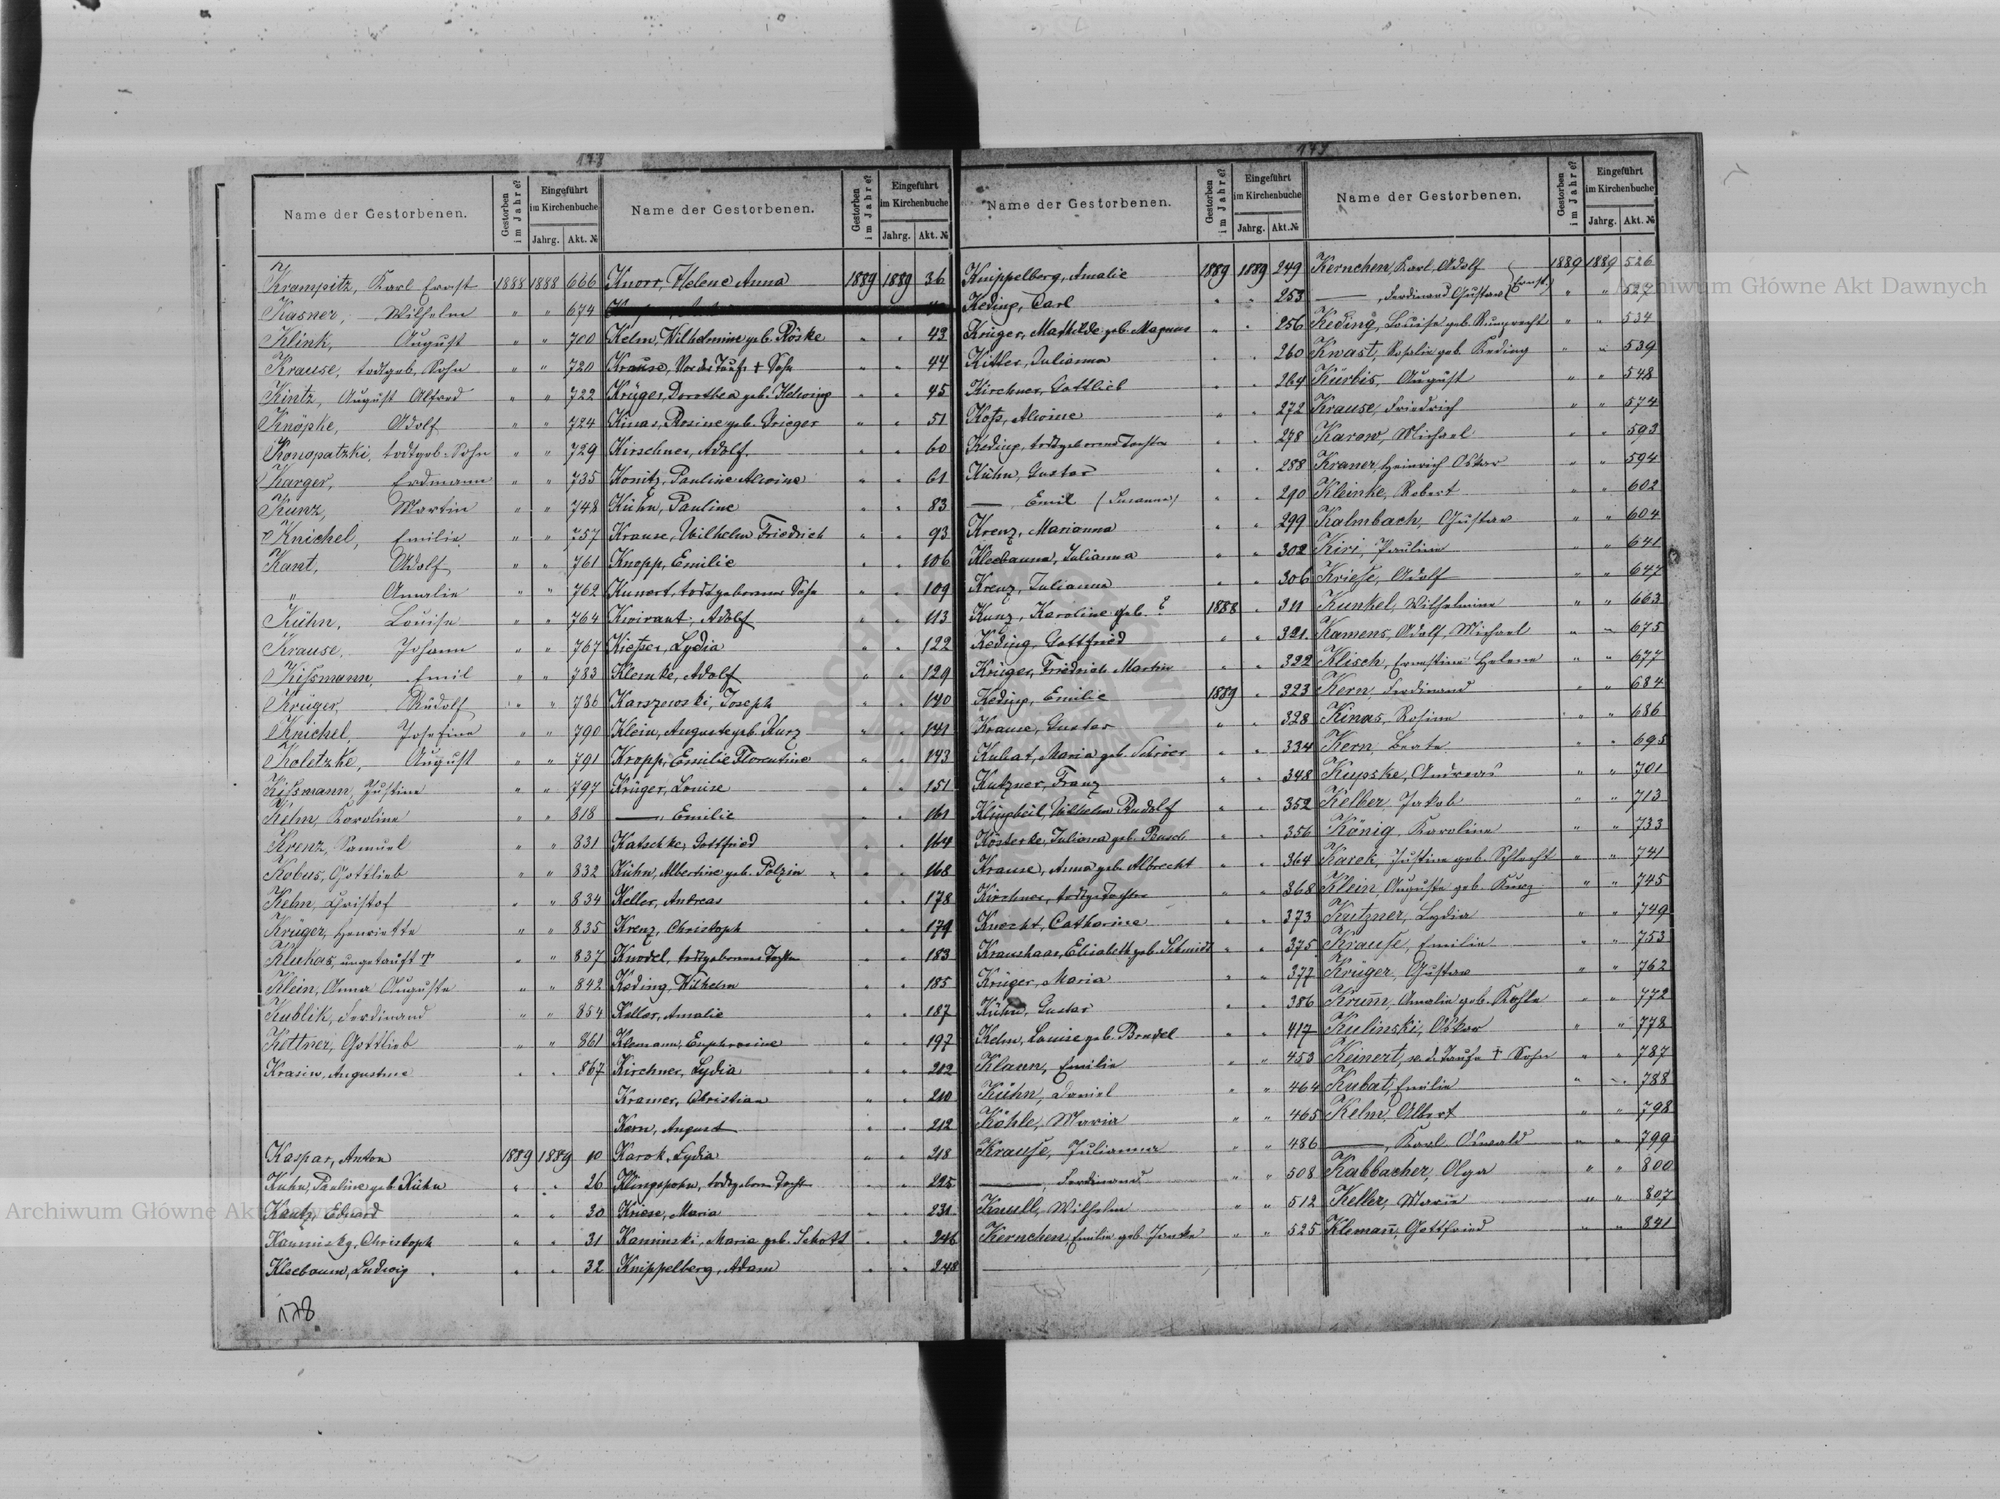 178
Name der Gestorbenen. Gestorben im Jahre? Eingeführt im Kirchenbuche Jahrg. Akt. №
Krampitz, Karl Ernst 1888 1888 666
Kasner, Wilhelm " " 674
Klink, August " " 700
Krause, todtgeb. Sohn " " 720
Kintz, August Alfred " " 722
Knöpke, Adolf " " 724
Konopatzki, todtgeb. Sohn " " 729
Karger, Erdmann " " 735
Kunz, Martin " " 748
Knichel, Emilie " " 757
Kant, Adolf " " 761
" Amalie " " 762
Kühn, Louise " " 764
Krause, Johann " " 767
Kissmann, Emil " " 783
Krüger, Rudolf " " 786
Knichel, Josefine " " 790
Koletzke, August " " 791
Kissmann, Justine " " 797
Kelm, Karoline " " 818
Krenz, Samuel " " 831
Kobus, Gottlieb " " 832
Kelm, Christof " " 834
Krüger, Henriette " " 835
Klukas, ungetauft † " " 837
Klein, Anna Auguste " " 842
Kublik, Ferdinand " " 854
Kettner, Gottlieb " " 861
Krasin, Augustine " " 867
Kaspar, Anton 1889 1889 10
Kuhn, Pauline geb. Kühn " " 26
Kautz, Eduard " " 30
Kaminsky, Christoph " " 31
Kleebaum, Ludwig " " 32
178
Name der Gestorbenen. Gestorben im Jahre? Eingeführt im Kirchenbuche Jahrg. Akt. №
Knorr, Helene Anna 1889 1889 36
Kelm, Wilhelmine geb. Röske " " 43
Krause, Vor der Taufe † Sohn " " 44
Krüger, Dorothea geb. Helwing " " 45
Kinas, Rosine geb. Krieger " " 51
Kirschner, Adolf " " 60
Konitz, Pauline Alwine " " 61
Kühn, Pauline " " 83
Krause, Wilhelm Friedrich " " 93
Knopp, Emilie " " 106
Kunert, todtgeborener Sohn " " 109
Kwirant, Adolf " " 113
Kieper, Lydia " " 122
Klemke, Adolf " " 129
Karszewski, Joseph " " 140
Klein, Auguste geb. Kurz " " 141
Kropp, Emilie Florentine " " 143
Krüger, Louise " " 151
——, Emilie " " 161
Katschke, Gottfried " " 164
Kühn, Albertine geb. Polzin " " 168
Keller, Andreas " " 178
Krenz, Christoph " " 179
Knodel, todtgeborene Tochter " " 183
Keding, Wilhelm " " 185
Keller, Amalie " " 187
Klemann, Euphrosine " " 197
Kirchner, Lydia " " 202
Kramer, Christian " " 210
Kern, August " " 212
Karok, Lydia " " 218
Klingspohn, todtgeborne Tochter " " 225
Kriese, Maria " " 231
Kaminski, Maria geb. Schott " " 246
Knippelberg, Adam " " 248
179
Name der Gestorbenen. Gestorben im Jahre? Eingeführt im Kirchenbuche Jahrg. Akt. №
Knippelberg, Amalie 1889 1889 249
Keding, Carl " " 253
Krüger, Mathilde geb. Magnus " " 256
Kittler, Julianna " " 260
Kirchner, Gottlieb " " 269
Alwine " " 272
Keding, todtgeborene Tochter " " 278
Kühn, Gustav " " 288
——, Emil (Susanna) " " 290
Krenz, Marianna " " 299
Kleebaum, Julianna " " 302
Krenz, Julianna " " 306
Kunz, Karoline geb. ? 1888 " 311
Keding, Gottfried " " 321
Krüger, Friedrich Martin " " 322
Keding, Emilie 1889 " 323
Krause, Gustav " " 328
Kubat, Maria geb. Schröer " " 334
Kutzner, Franz " " 348
Klingbeil, Wilhelm Rudolf " " 352
Kösterke, Juliana geb. Busch " " 356
Krause, Anna geb. Albrecht " " 364
Kirchner, todtg. Tochter " " 368
Knecht, Catharine " " 373
Kraushaar, Elisabeth geb. Schmidt " " 375
Krüger, Maria " " 377
Kühn, Gustav " " 386
Kelm, Louise geb. Bredel " " 417
Klann, Emilie " " 453
Kühn, Daniel " " 464
Köhle, Maria " " 465
Krause, Julianna " " 486
——, Ferdinand " " 508
Knull, Wilhelm " " 512
Kernchen, Emilie geb. Janke " " 525
Name der Gestorbenen. Gestorben im Jahre? Eingeführt im Kirchenbuche Jahrg. Akt. №
Kernchen, Karl Adolf 1889 1889 526
——, Ferdinand Gustav (Ernst) " " 527
Keding, Louise geb. Rumprecht " " 534
Kwast, Rosalie geb. Keding " " 539
Kürbis, August " " 548
Krause, Friedrich " " 574
Karow, Michael " " 593
Kraner, Heinrich Oskar " " 594
Kleinke, Robert " " 602
Kalmbach, Gustav " " 604
Kiri, Pauline " " 641
Kriese, Adolf " " 647
Kunkel, Wilhelmine " " 663
Kamens, Adolf Michael " " 675
Klisch, Ernestine Helene " " 677
Kern, Ferdinand " " 684
Kinas, Rosine " " 686
Kern, Beate " " 695
Kupske, Andreas " " 701
Kelber, Jakob " " 713
König, Karoline " " 733
Karek, Justine geb. Schlecht " " 741
Klein, Auguste geb. Kurz " " 745
Kutzner, Lydia " " 749
Krause, Emilie " " 753
Krüger, Gustav " " 762
Krum̄, Amalie geb. Kohle " " 772
Kulinski, Oskar " " 778
Keinert, v. d. Taufe † Sohn " " 787
Kubat, Emilie " " 788
Kelm, Albert " " 798
——, Karl Oswald " " 799
Kabbacher, Olga " " 800
Keller, Marie " " 807
Kleman̄, Gottfried " " 841
Archiwum Główne Akt Dawnych
Archiwum Główne Akt Dawnych